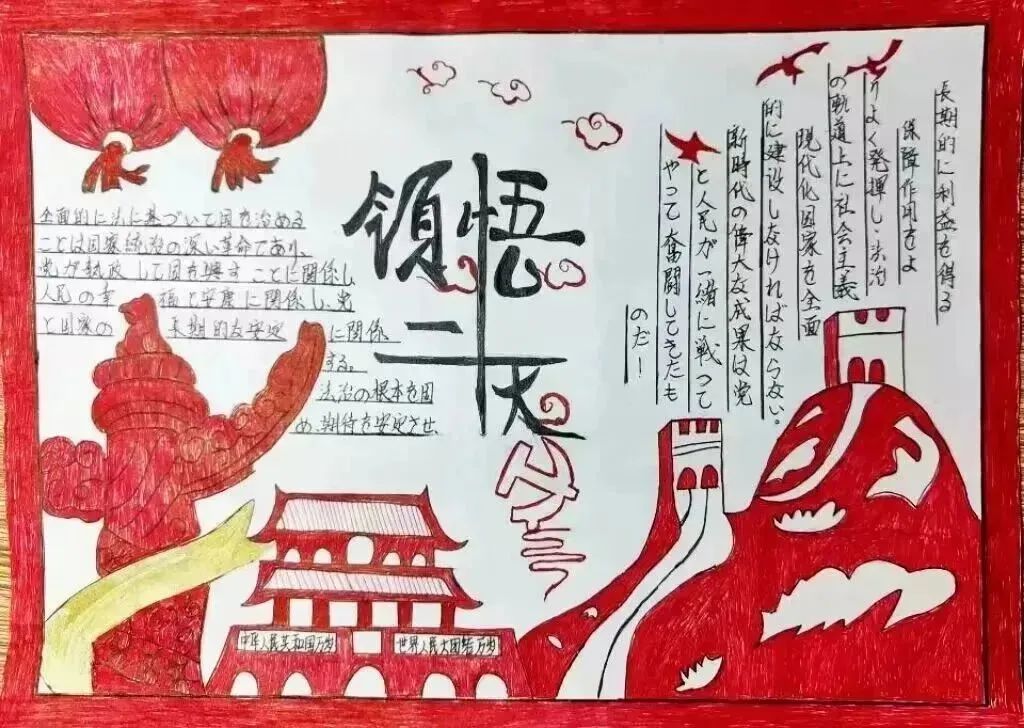 领悟
二十大
全面的に法に基づいて国を治める
ことは国家統治の深い革命であり、
党が執政して国を興すことに関係し
人民の幸福と安康に関係し、党
と国家の長期的な安定に関係
する。
法治の根本を固
め、期待を安定させ、
長期的に利益を得る
保障作用をよ
りよく発揮し、法治
の軌道上に社会主義
現代化国家を全面
的に建設しなければならない。
新時代の偉大な成果は党
と人民が一緒に戦って
やって奮闘してきたも
のだ！
中华人民共和国万岁
世界人民大团结万岁